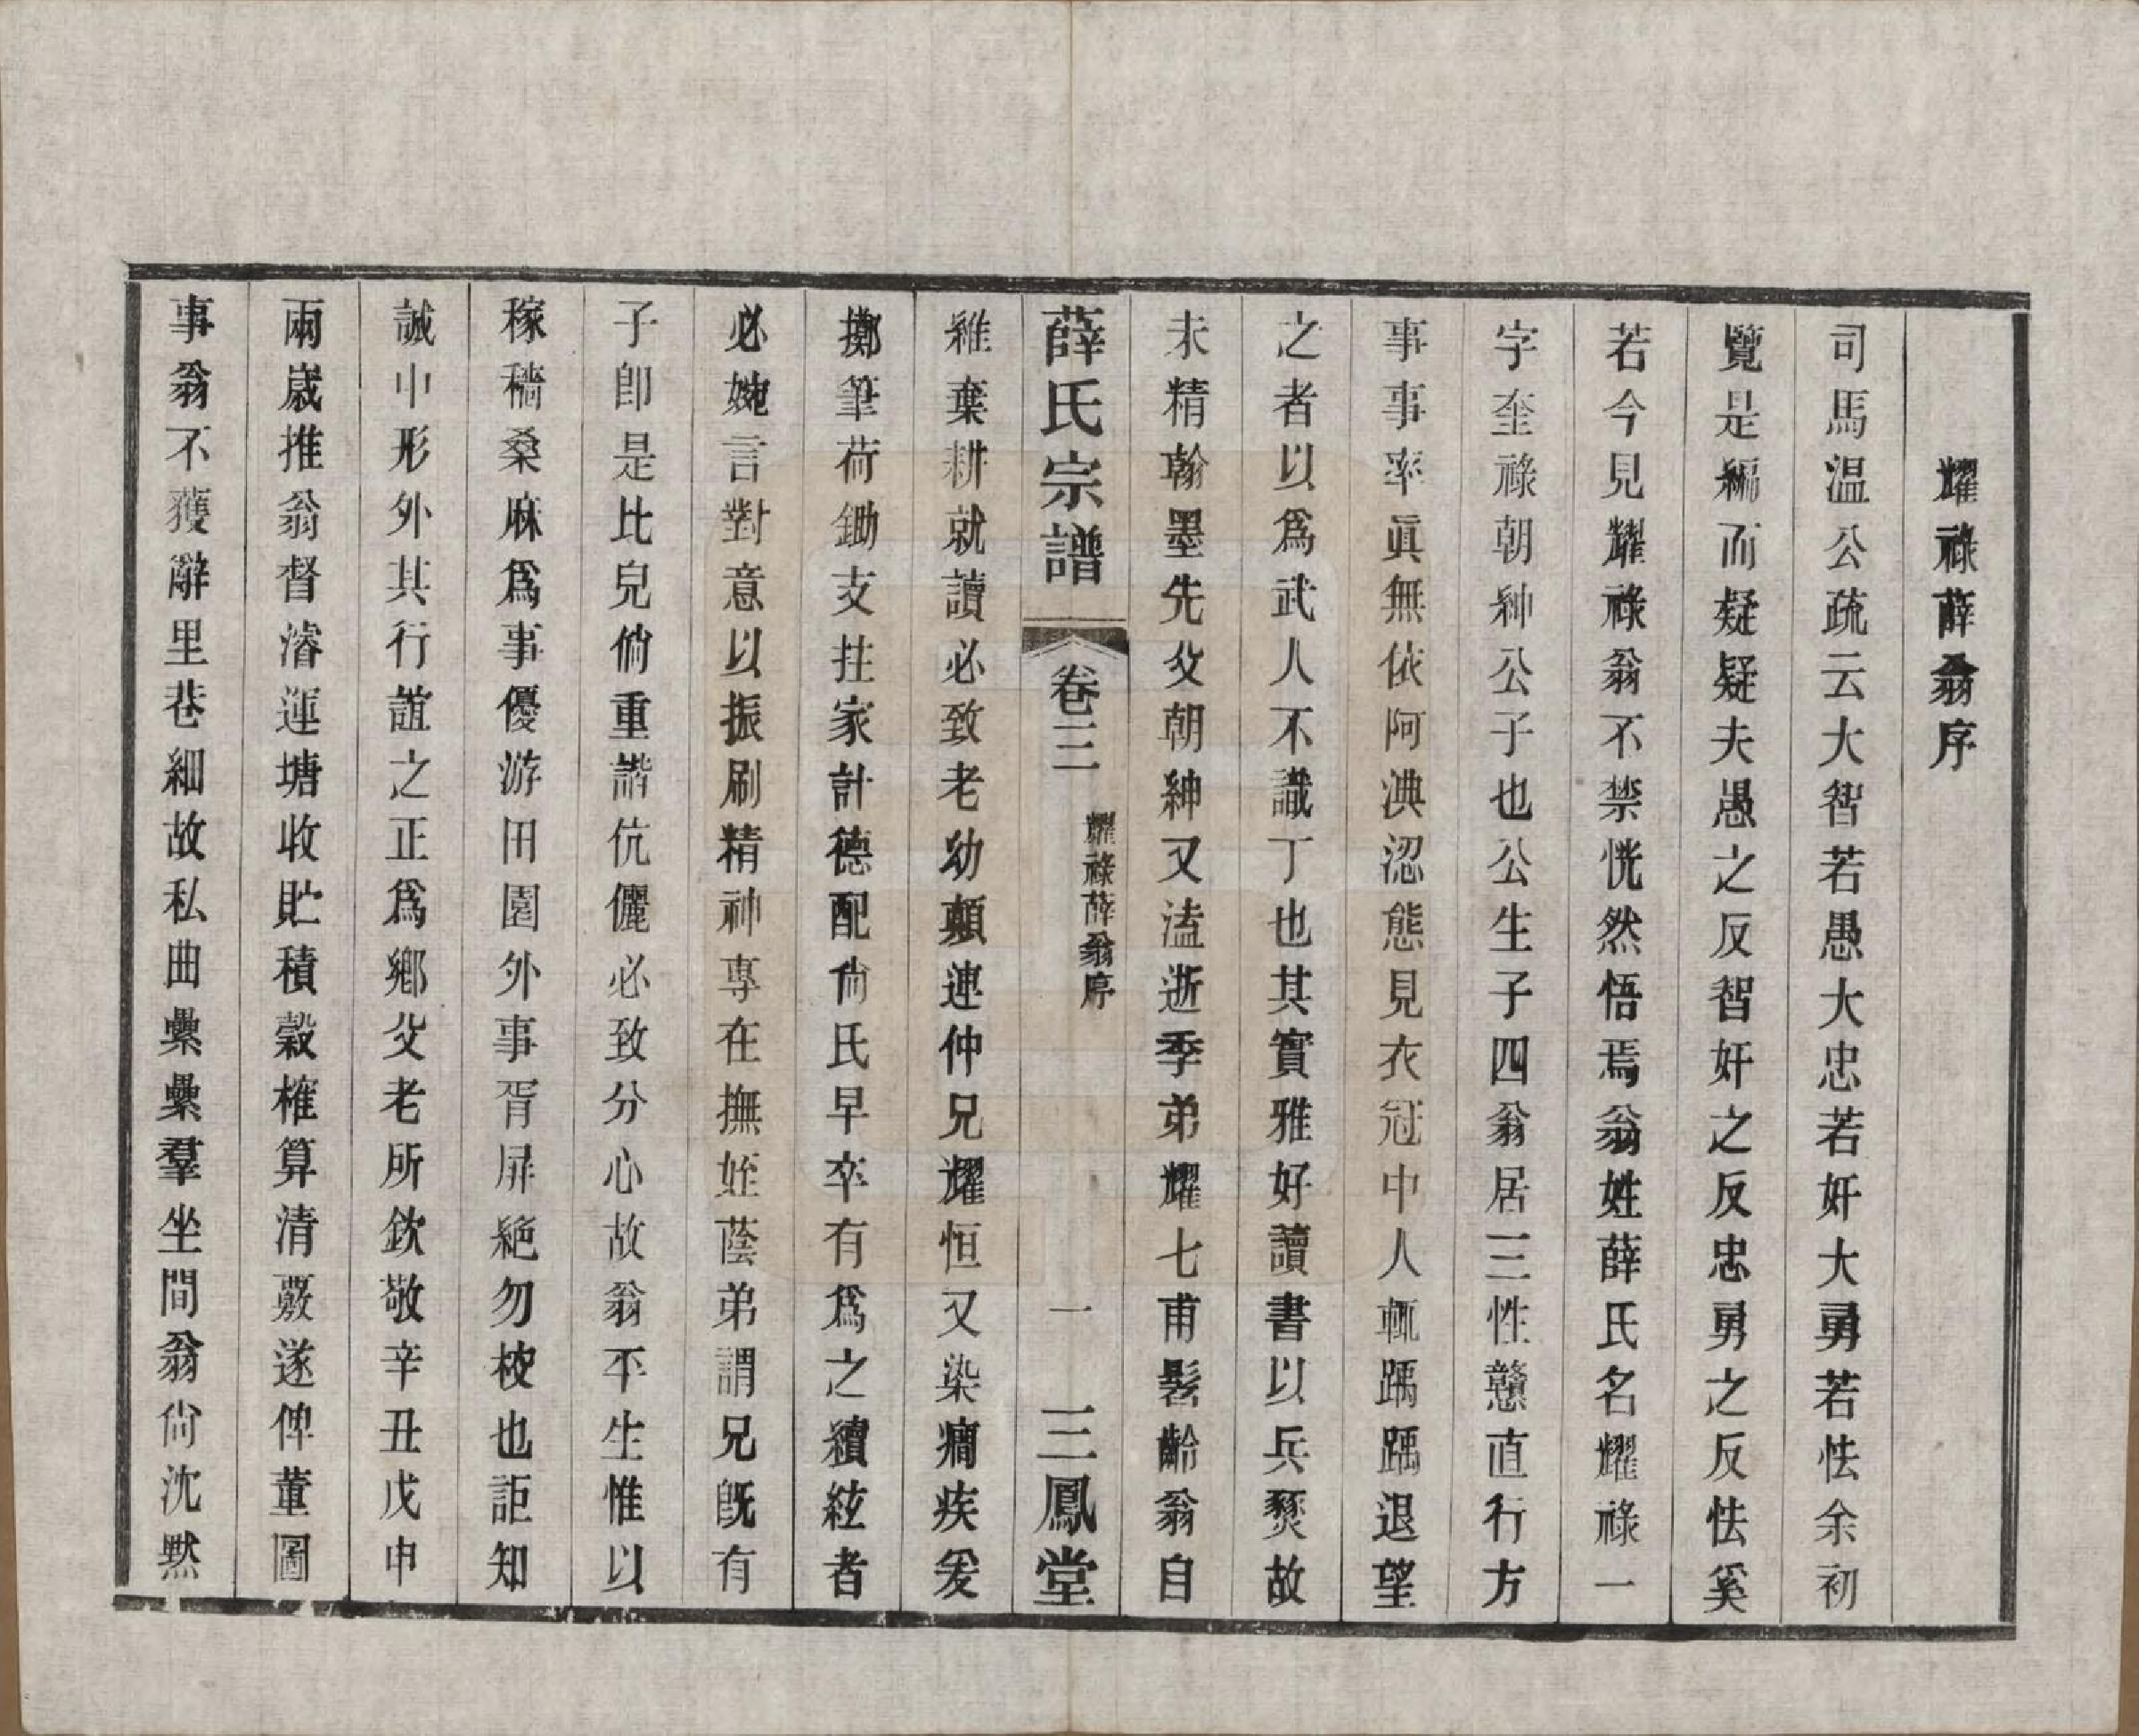 耀祿薛翁序
司馬温公疏云大智若愚大忠若奸大勇若怯余初
覽是編而疑疑夫愚之反智奸之反忠勇之反怯奚
若今見耀祿翁不禁恍然悟焉翁姓薛氏名耀祿一
字奎祿朝紳公子也公生子四翁居三性戇直行方
事事率眞無依阿淟涊態見衣冠中人輒踽踽退望
之者以爲武人不識丁也其實雅好讀書以兵燹故
未精翰墨先父朝紳又溘逝季弟耀七甫髫齡翁自
薛氏宗譜
卷三
耀祿薛翁序
一
三鳳堂
維棄耕就讀必致老幼顛連仲兄耀恒又染癎疾爰
擲筆荷鋤支拄家計德配尙氏早卒有爲之續絃者
必婉言對意以振刷精神專在撫姪蔭弟謂兄旣有
子卽是比兒倘重諧伉儷必致分心故翁平生惟以
稼穡桑麻爲事優游田園外事胥屏絶勿校也詎知
誠中形外其行誼之正爲鄉父老所欽敬辛丑戊申
兩歲推翁督濬運塘收貯積穀榷算清覈遂俾董圖
事翁不獲辭里巷細故私曲纍纍羣坐間翁尙沈默